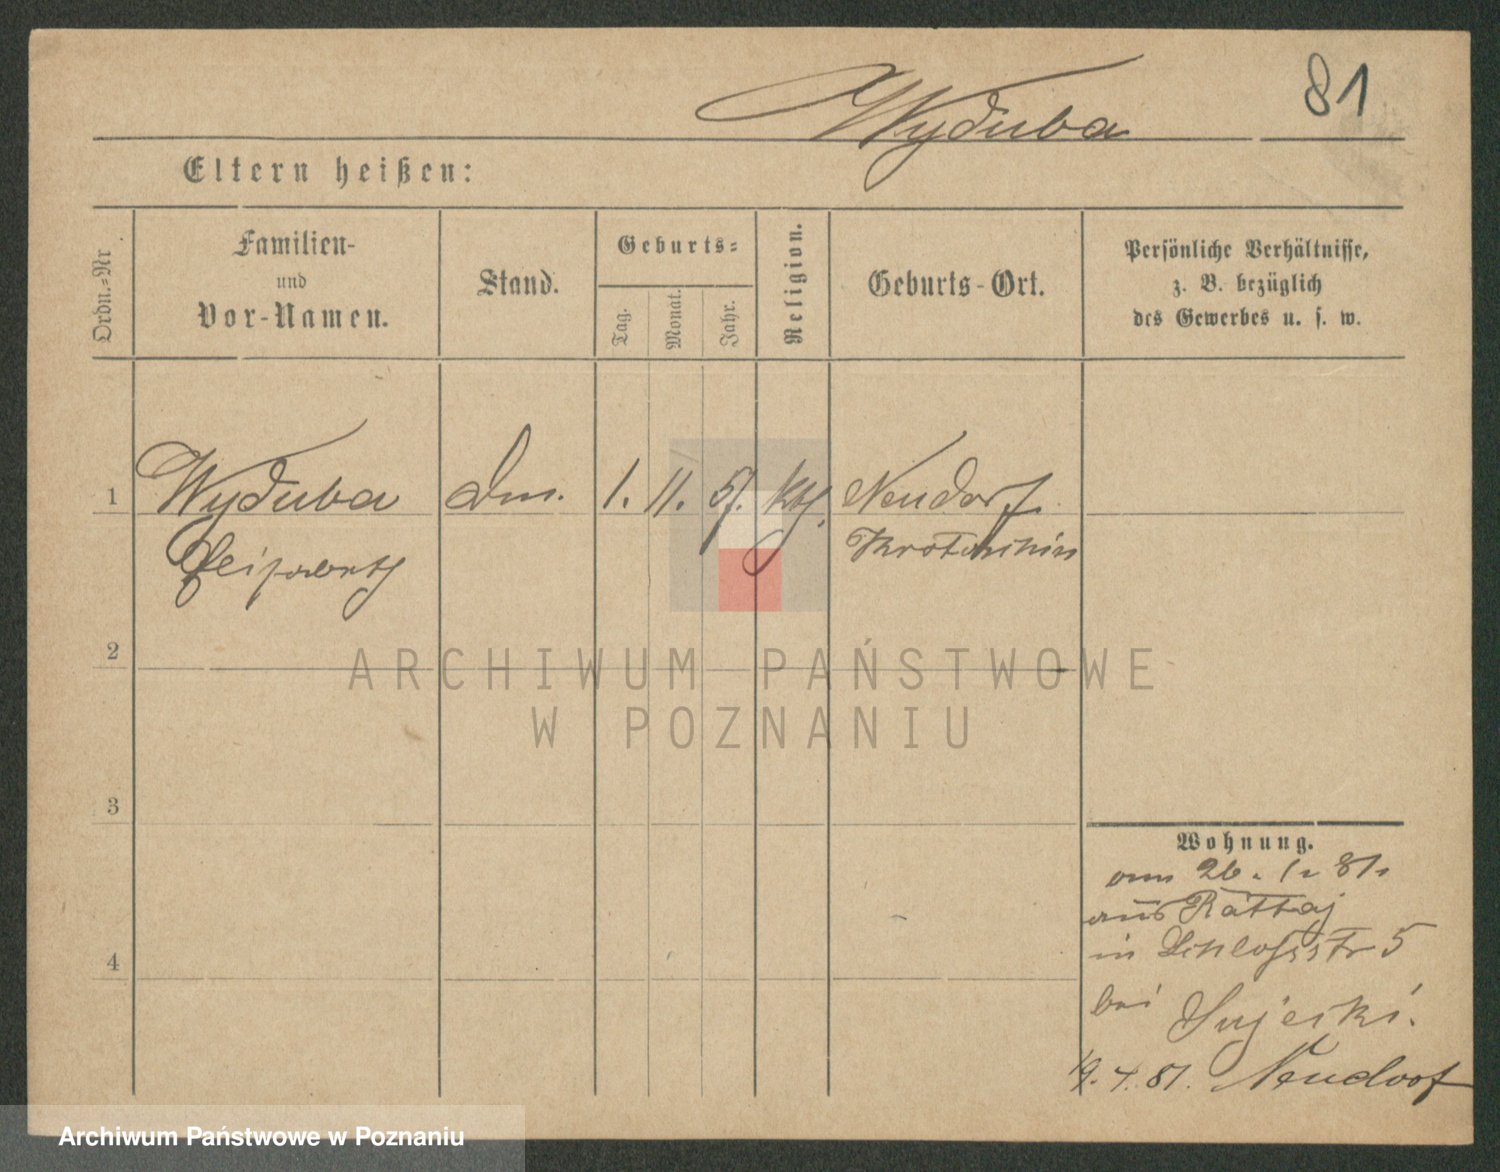 81
Wyduba
Eltern heißen:
Ordn.=Nr
Familien-
und
Vor-Namen.
Stand.
Geburts=
Tag.
Monat.
Jahr.
Religion.
Geburts-Ort.
Persönliche Verhältnisse,
z. B. bezüglich
des Gewerbes u. s. w.
1
Wyduba
Dm.
1.
11.
kth.
Neudorf
Krotoschin
2
ARCHIWUM PAŃSTWOWE
W POZNANIU
3
Wohnung.
am 26. 1. 81.
aus Rattaj
in Schlossstr 5
4
bei Sujecki.
19. 4. 81. Neudorf
Archiwum Państwowe w Poznaniu